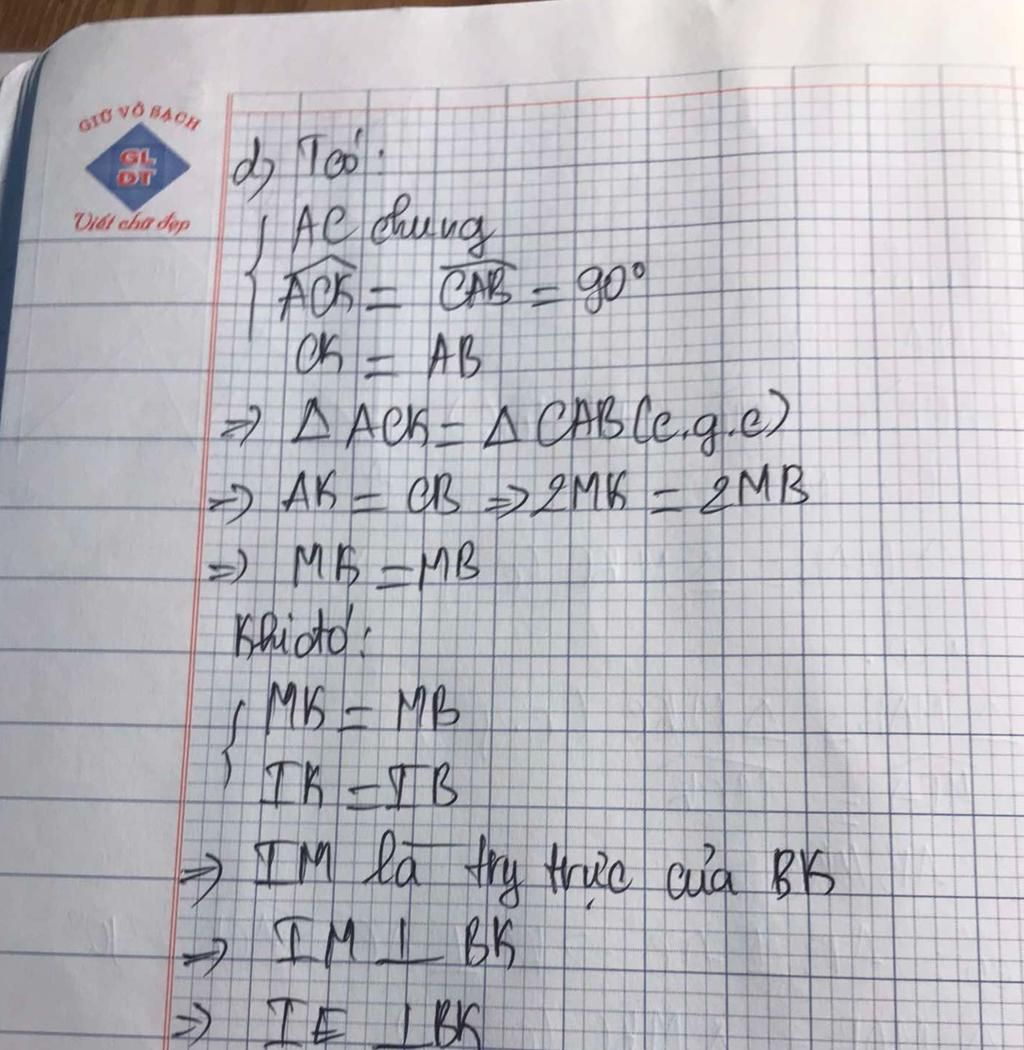 GIỮ VỞ SẠCH
GL
ĐT
Viết chữ đẹp
d) Tcó:
AC chung
ACK = CAB = 90°
CK = AB
=> Δ ACK = Δ CAB (c.g.c)
=> AK = CB => 2MK = 2MB
=> MK = MB
Khi đó:
MK = MB
IK = IB
=> IM là try trực của BK
=> IM ⊥ BK
=> IE ⊥ BK